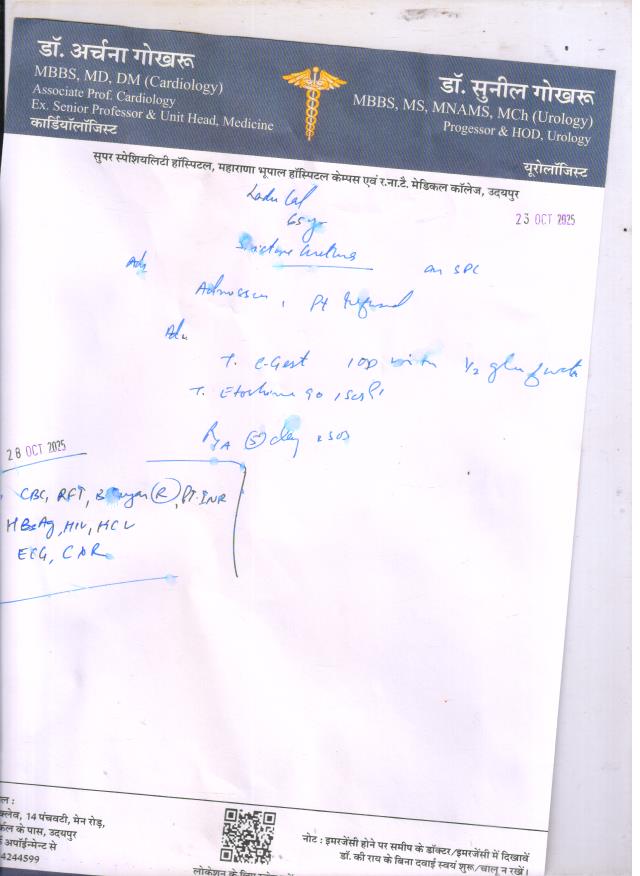 डॉ. अर्चना गोखरू
MBBS, MD, DM (Cardiology)
Associate Prof. Cardiology
Ex. Senior Professor & Unit Head, Medicine
कार्डियॉलॉजिस्ट
डॉ. सुनील गोखरू
MBBS, MS, MNAMS, MCh (Urology)
Progessor & HOD, Urology
यूरोलॉजिस्ट
सुपर स्पेशियलिटी हॉस्पिटल, महाराणा भूपाल हॉस्पिटल केम्पस एवं र.ना.टै. मेडिकल कॉलेज, उदयपुर
23 OCT 2025
65yr
Stricture urethra
on SPC
Adv
Admission, Pt refused
Adv
T. 1OD with 1/2 glass
T. 90, 1SOS
R/A (5) day, SOS
28 OCT 2025
CBC, RFT, B Sugar (R), PT-INR
HBsAg, HIV, HCV
ECG, CXR
क्लेव, 14 पंचवटी, मेन रोड़,
के पास, उदयपुर
अपॉईन्मेन्ट से
4244599
नोट : इमरजेंसी होने पर समीप के डॉक्टर/इमरजेंसी में दिखावें
डॉ. की राय के बिना दवाई स्वयं शुरू/चालू न रखें।
लोकेशन के लिए